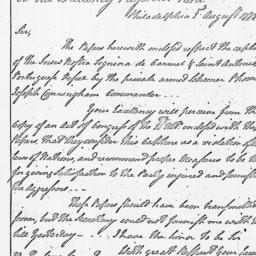 Philadelphia 1st August 1778
Sir,
The Papers herewith enclosed respect the capture
of the Snow Nostra Signina de Carmel & Saint Antonio
Portuguese Vessel by the private armed Schooner Phoenix
Joseph Cunningham Commander
Your Excellency will perceive from the
Copy of an act of Congress of the Ult. enclosed with the
Papers, that they consider this Capture as a violation of the
Laws of Nations, and recommend proper Measures to be
for giving Satisfaction to the Party injured and punish
the Aggressors
These Papers should have been transmitted
sooner, but the Secretary could not furnish me with them
till Yesterday — I have the honor to be Sir
With great Respect Your